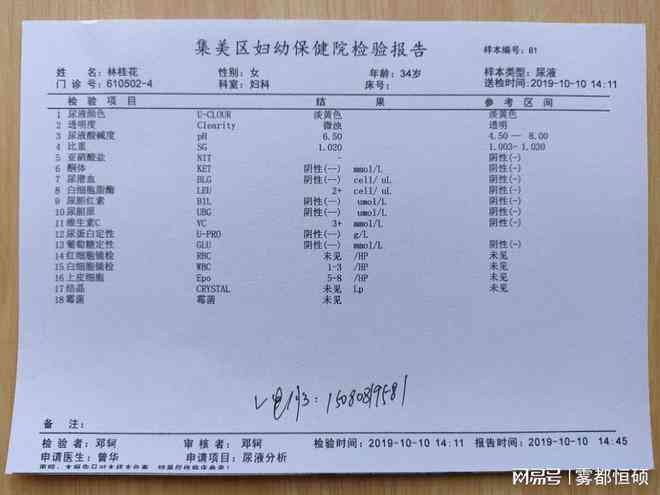 集美区妇幼保健院检验报告
样本编号: 81
姓 名: 林桂花 性别: 女 年龄: 34岁 样本类型: 尿液
门 诊 号: 610502-4 科室: 妇科 床号: 送检时间: 2019-10-10 14:11
检 验 项 目 结 果 参 考 区 间
1 尿液颜色 U-CLOUR 淡黄色 淡黄色
2 透明度 Clearity 微浊 透明
3 尿液酸碱度 pH 6.50 4.50 — 8.00
4 比重 SG 1.020 1.003- 1.030
5 亚硝酸盐 NIT - 阴性(-)
6 酮体 KET 阴性(—) mmol/L 阴性(-)
7 尿潜血 BLG 阴性(—) cell/ uL 阴性(-)
8 白细胞脂酶 LEU 2+ cell/ uL 阴性(-)
9 尿胆红素 BIL 阴性(—) umol/L 阴性(-)
10 尿胆原 UBG 阴性(—) umol/L 阴性(-)
11 维生素C VC 3+ mmol/L
12 尿蛋白定性 U-PRO 阴性(—) g/L
13 葡萄糖定性 GLU 阴性(—) mmol/L 阴性(-)
14 红细胞镜检 RBC 未见 /HP 未见
15 白细胞镜检 WBC 1-3 /HP 未见
16 上皮细胞 Epo 5-8 /HP 未见
17 结晶 CRYSTAL 未见 Lp 未见
18 霉菌 霉菌 未见
备 注:
检 验 者: 邓轲 审 核 者: 邓轲 检验时间: 2019-10-10 14:11 报告时间: 2019-10-10 14:45
申请医生: 曾华 申请项目: 尿液分析
搜狐号@雾都恒硕